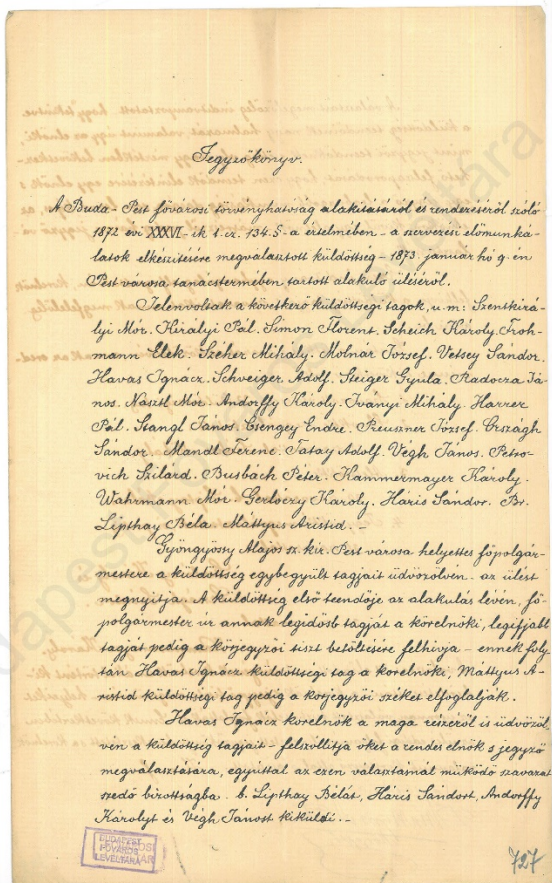 Jegyzőkönyv.
A Buda-Pest fővárosi törvényhatóság alakitásáról és rendezéséről szóló
1872 évi XXXVI-ik t. cz. 134. §-a értelmében - a szervezési előmunká-
latok elkészitésére megválasztott küldöttség - 1873. január hó 9-en
Pest városa tanácstermében tartott alakuló üléséről.
Jelenvoltak a következő küldöttségi tagok, u. m: Szentkirá-
lyi Mór. Királyi Pál. Simon Florent. Scheich Károly. Froh-
mann Elek. Széher Mihály. Molnár József. Vetsey Sándor.
Havas Ignácz. Schweiger Adolf. Steiger Gyula. Radocza Já-
nos. Nasztl Mór. Andorffy Károly. Iványi Mihály. Harrer
Pál. Stangl János. Csengey Endre. Preuszner József. Országh
Sándor. Mandl Ferenc. Tatay Adolf. Végh János. Petro-
vich Szilárd. Busbach Péter. Kammermayer Károly.
Wahrmann Mór. Gerlóczy Károly. Háris Sándor. Br.
Lipthay Béla. Máttyus Aristid. -
Gyöngyössy Alajos sz. kir. Pest városa helyettes főpolgár-
mestere a küldöttség egybegyült tagjait üdvözölvén - az ülést
megnyitja. A küldöttség első teendője az alakulás lévén, fő-
polgármester úr annak legidősb tagját a korelnöki, legifjabb
tagját pedig a korjegyzői tiszt betöltésére felhivja - ennek foly-
tán Havas Ignácz küldöttségi tag a korelnöki, Máttyus A-
ristid küldöttségi tag pedig a korjegyzői széket elfoglalják.
Havas Ignácz korelnök a maga részéről is üdvözöl-
vén a küldöttség tagjait - felszóllitja őket a rendes elnök s jegyző
megválasztására, egyúttal az ezen választásnál működő szavazat
szedő bizottságba. b. Lipthay Bélát, Háris Sándort, Andorffy
Károlyt és Végh Jánost kiküldi. -
BUDAPEST
FŐVÁROS
LEVÉLTÁRA
727